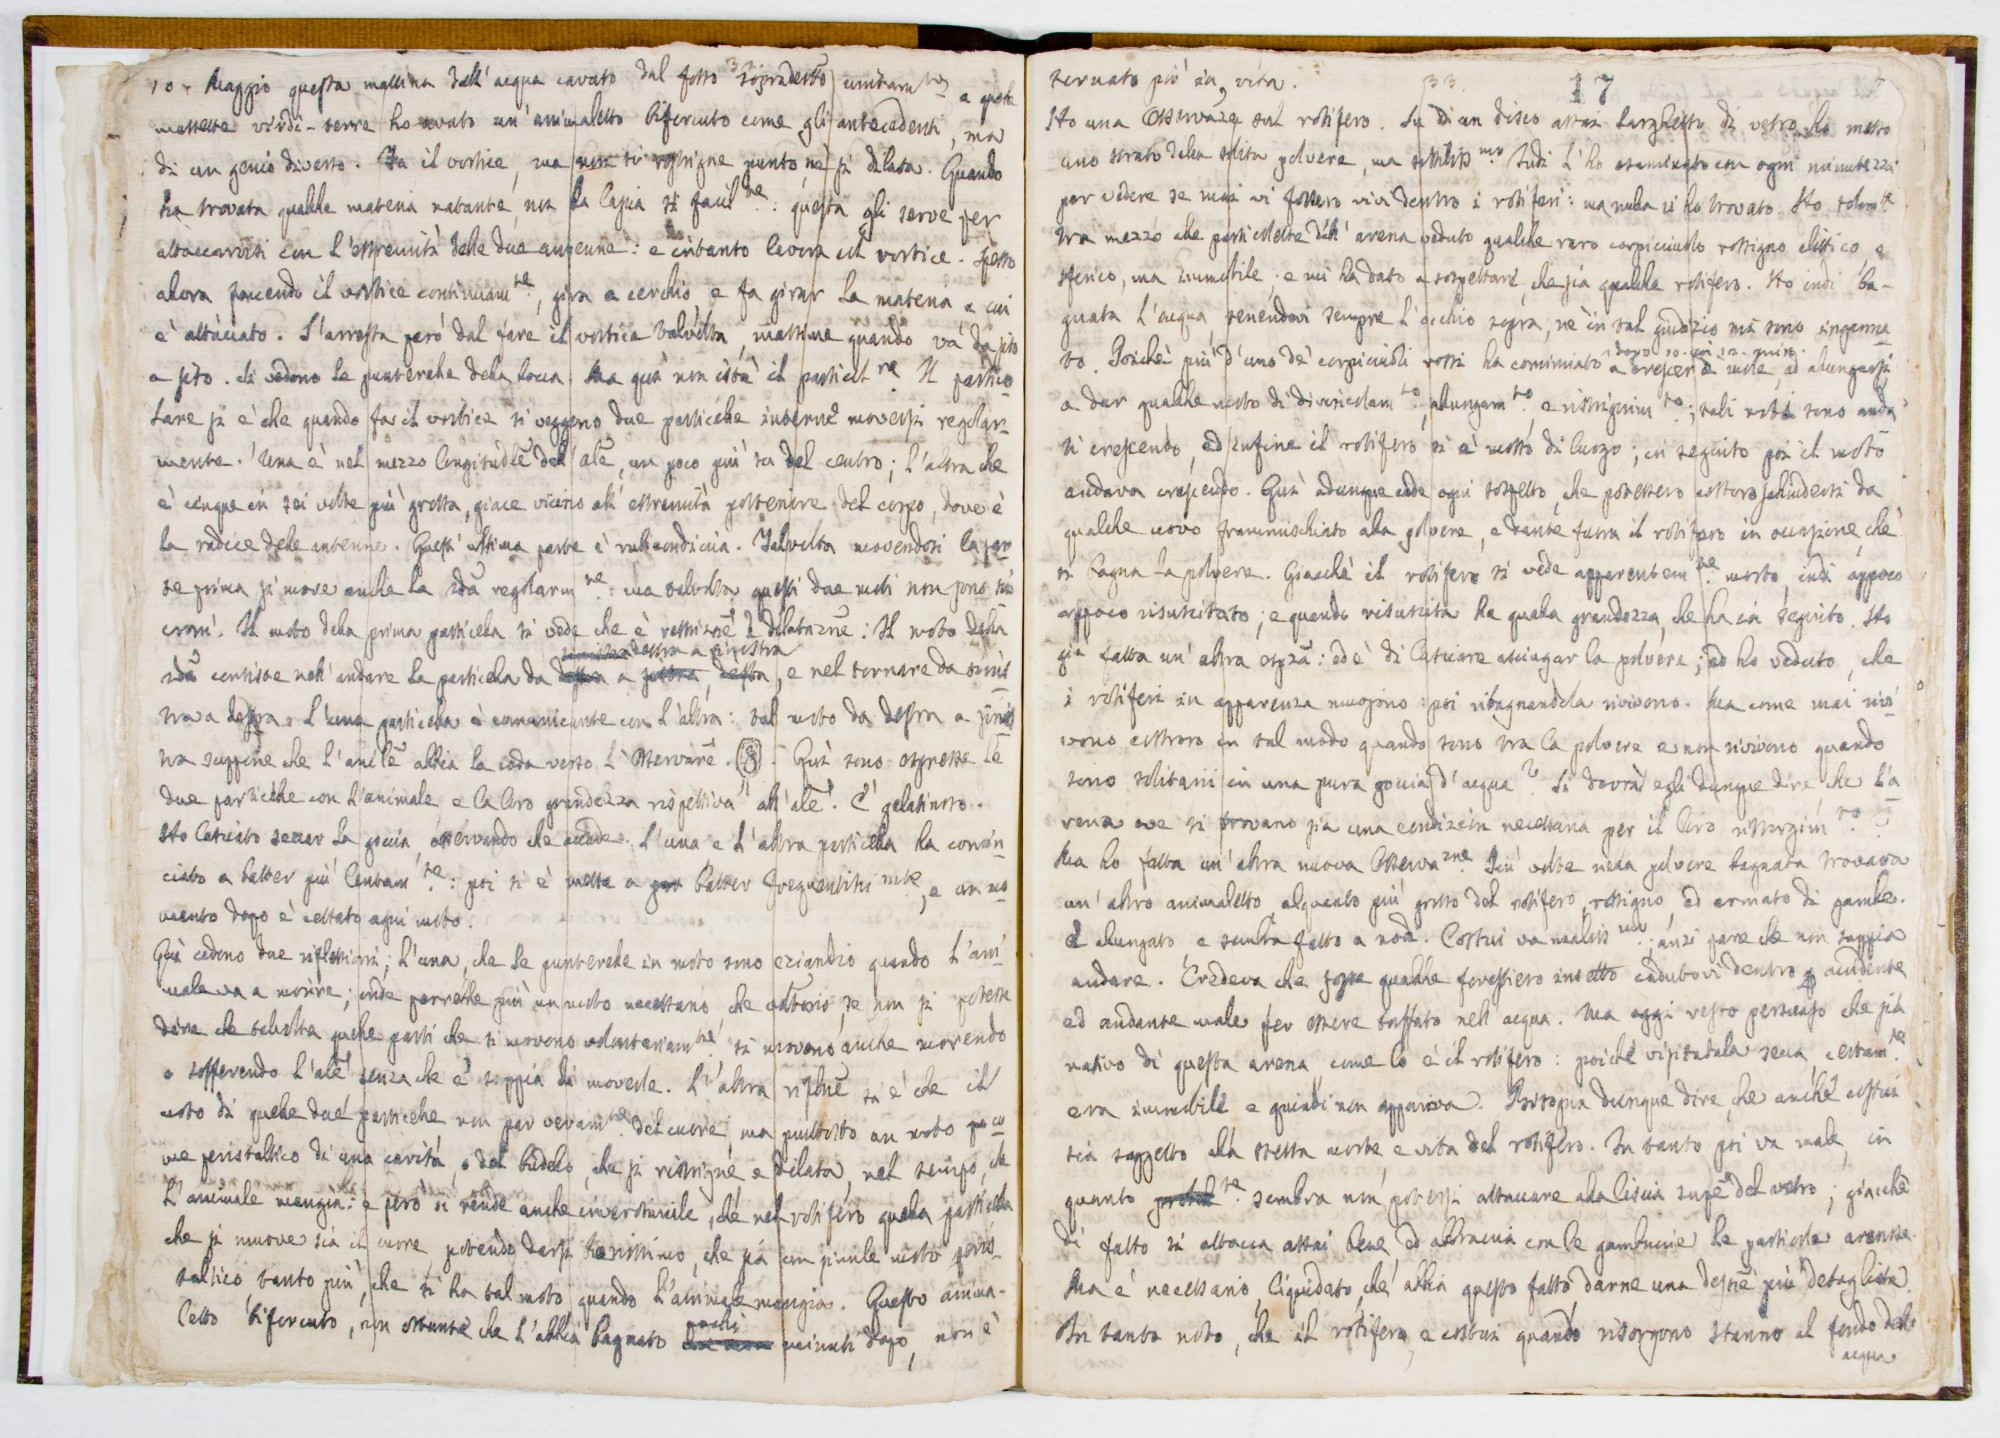 10. Maggio questa mattina dall' acqua cavato dal fosso sopradetto unitam.te a quelle
materette virdi-terre ho avuto un' animaletto biforcuto come gli antecedenti, ma
di un genio diverso. Fa il vortice, ma non si restrigne punto, nè si dilata. Quando
ha trovata qualche materia natante, non la lascia sì facil.te: questa gli serve per
attaccarvisi con l'estremità delle due antenne: e intanto lavora col vortice. Spesso
allora facendo il vortice continuam.te, gira a cerchio e fa girar la materia a cui
è attaccato. S'arresta però dal fare il vortice talvolta, massime quando và da sito
a sito. Si vedono le punterelle della bocca. Ma quì non istà il particol.re Il partico
lare si è che quando fa il vortice si veggono due particelle interne moversi regolar-
mente. Una è nel mezzo longitudle dell' ale, un poco più su del centro; l'altra che
è cinque in sei volte più grossa, giace vicino all' estremità posteriore del corpo, dove è
la radice delle antenne. Quest' ultima parte è rubicondiccia. Talvolta movendosi la par
te prima si move anche la 2da regolarm.te: ma talvolta questi due moti non sono sin
croni. Il moto della prima particella si vede che è restrizne e dilatazne: Il moto della
2da consiste nell' andare la particella da destra a sinistra, e nel tornare da sinis
tra a destra. L'una particella è comunicante con l'altra: tal moto da destra a sinis
tra suppone che l'anile abbia la coda verso l'osservare. (8). Quì sono espresse le
due particelle con l'animale e la loro grandezza rispettiva all' ale. È gelatinoso.
Ho lasciato seccar la goccia, osservando che accade. L'una e l'altra particella ha comin
ciato a batter più lentam.te: poi si è messa a batter frequentissimte, e un mo
mento dopo è cessato ogni moto.
Quì cadono due riflessioni; l'una, che le punterelle in moto sono eziandio quando l'ani
male va a morire; onde parrebbe più un moto necessario che volontario, se non si potesse
dire che talvolta quelle parti che si movono volontariam.te, si movono anche morendo
o sofferendo l'ale senza che e' sappia di moverle. L'altra riflne si è che il
moto di quelle due particelle non par veram.te del cuore, ma piuttosto un moto
me peristaltico di una cavità, o del budello, che si ristrigne e dilata, nel tempo, che
l'animale mangia: e però si rende anche inverosimile, che nel rotifero quella particella
che si muove sia il cuore, potendo darsi benissimo, che sia un simile moto peris-
taltico, tanto più, che si ha tal moto quando l'animale mangia. Questo anima-
letto biforcuto, non ostante che l'abbia bagnato pochi minuti dopo, non è
33. 17
tornato più in vita.
Ho una Osservaze sul rotifero. Su di un disco assai larghetto di vetro ho messo
uno strato della solita polvere, ma sottiliss.mo Indi l'ho esaminato con ogni minutezza
per vedere se mai vi fossero vivi dentro i rotiferi: ma nulla vi ho trovato. Ho solam.te
tra mezzo alle particellette dell' arena veduto qualche raro corpicciuolo rossigno elittico, e
sferico, ma immobile: e mi ha dato a sospettare, che sia qualche rotifero. Ho indi ba-
gnata l'acqua, tenendovi sempre l'occhio sopra, nè in tal giudizio mi sono inganna
to. Poichè più d'uno de' corpicciuoli rossi ha cominciato dopo 10. in 12. minu. a crescer di mole, ad allungarsi,
a dar qualche moto di divincolam.to, allungam.to, e ristrignim.to; tali moti sono anda
ti crescendo, ed infine il rotifero si è mosso di luogo; in seguito poi il moto
andava crescendo. Quì adunque cade ogni sospetto, che potessero costoro schiudersi da
qualche uovo frammischiato alla polvere, e trarne fuora il rotifero in occasione, che
si bagna la polvere. Giacchè il rotifero si vede apparentem.te morto, indi appoco
appoco risuscitato; e quando risuscita ha quella grandezza, che ha in seguito. Ho
già fatta un' altra espza: ed è di lasciare asciugar la polvere; ed ho veduto, che
i rotiferi in apparenza muojono: poi ribagnandola rivivono. Ma come mai rivi
vono costoro in tal modo quando sono tra la polvere e non rivivono quando
sono solitarii in una pura goccia d'acqua? Si dovrà egli dunque dire che l'a
rena ove si trovano sia una condizion necessaria per il loro risorgim.to?
Ma ho fatta un' altra nuova Osservazne. Più volte nella polvere bagnata trovava
un' altro animaletto alquanto più grosso del rotifero, rossigno, ed armato di gambe.
È allungato e sembra fatto a nodi. Costui va maliss.mo; anzi pare che non sappia
andare. Credeva che fosse qualche forestiero insetto cadutovi dentro p accidente
ed andante male per essere tuffato nell' acqua. Ma oggi resto persuaso che sia
nativo di questa arena come lo è il rotifero: poichè visitatala secca, certam.te
era immobile e quindi non appariva. Bisogna dunque dire, che anche costui
sia soggetto alla stessa morte e vita del rotifero. In tanto poi va male, in
quanto sembra non potersi attaccare alla liscia supe del vetro; giacchè
di fatto si attacca assai bene, ed abbraccia con le gambuccie le particole arenose.
Ma è necessario, liquidato, che abbia questo fatto, darne una dessne più detagliata.
In tanto noto, che il rotifero, e costui quando risorgono stanno al fondo dell
acqua